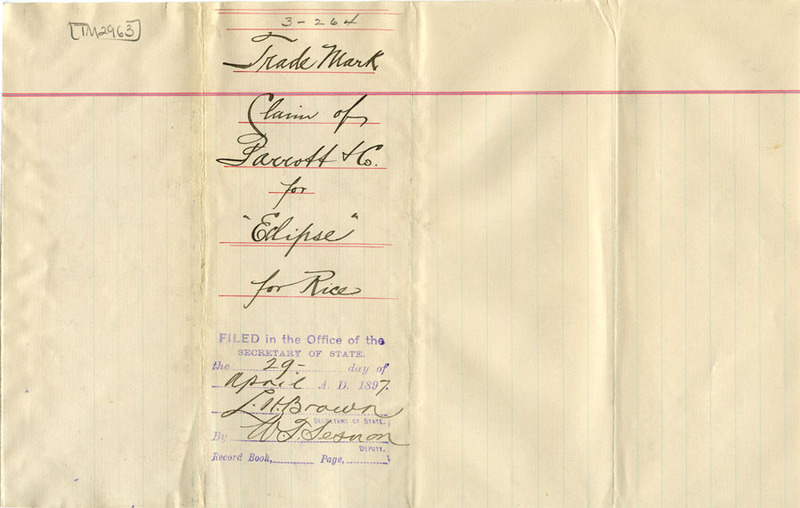 TM2963
3-264
Trade Mark
Claim of
Parrott & Co.
for
"Eclipse"
for Rice
FILED in the Office of the
SECRETARY OF STATE.
the 29- day of
April A. D. 1897.
L. H. Brown
SECRETARY OF STATE.
By W. T. Sesnon
DEPUTY.
Record Book, Page,